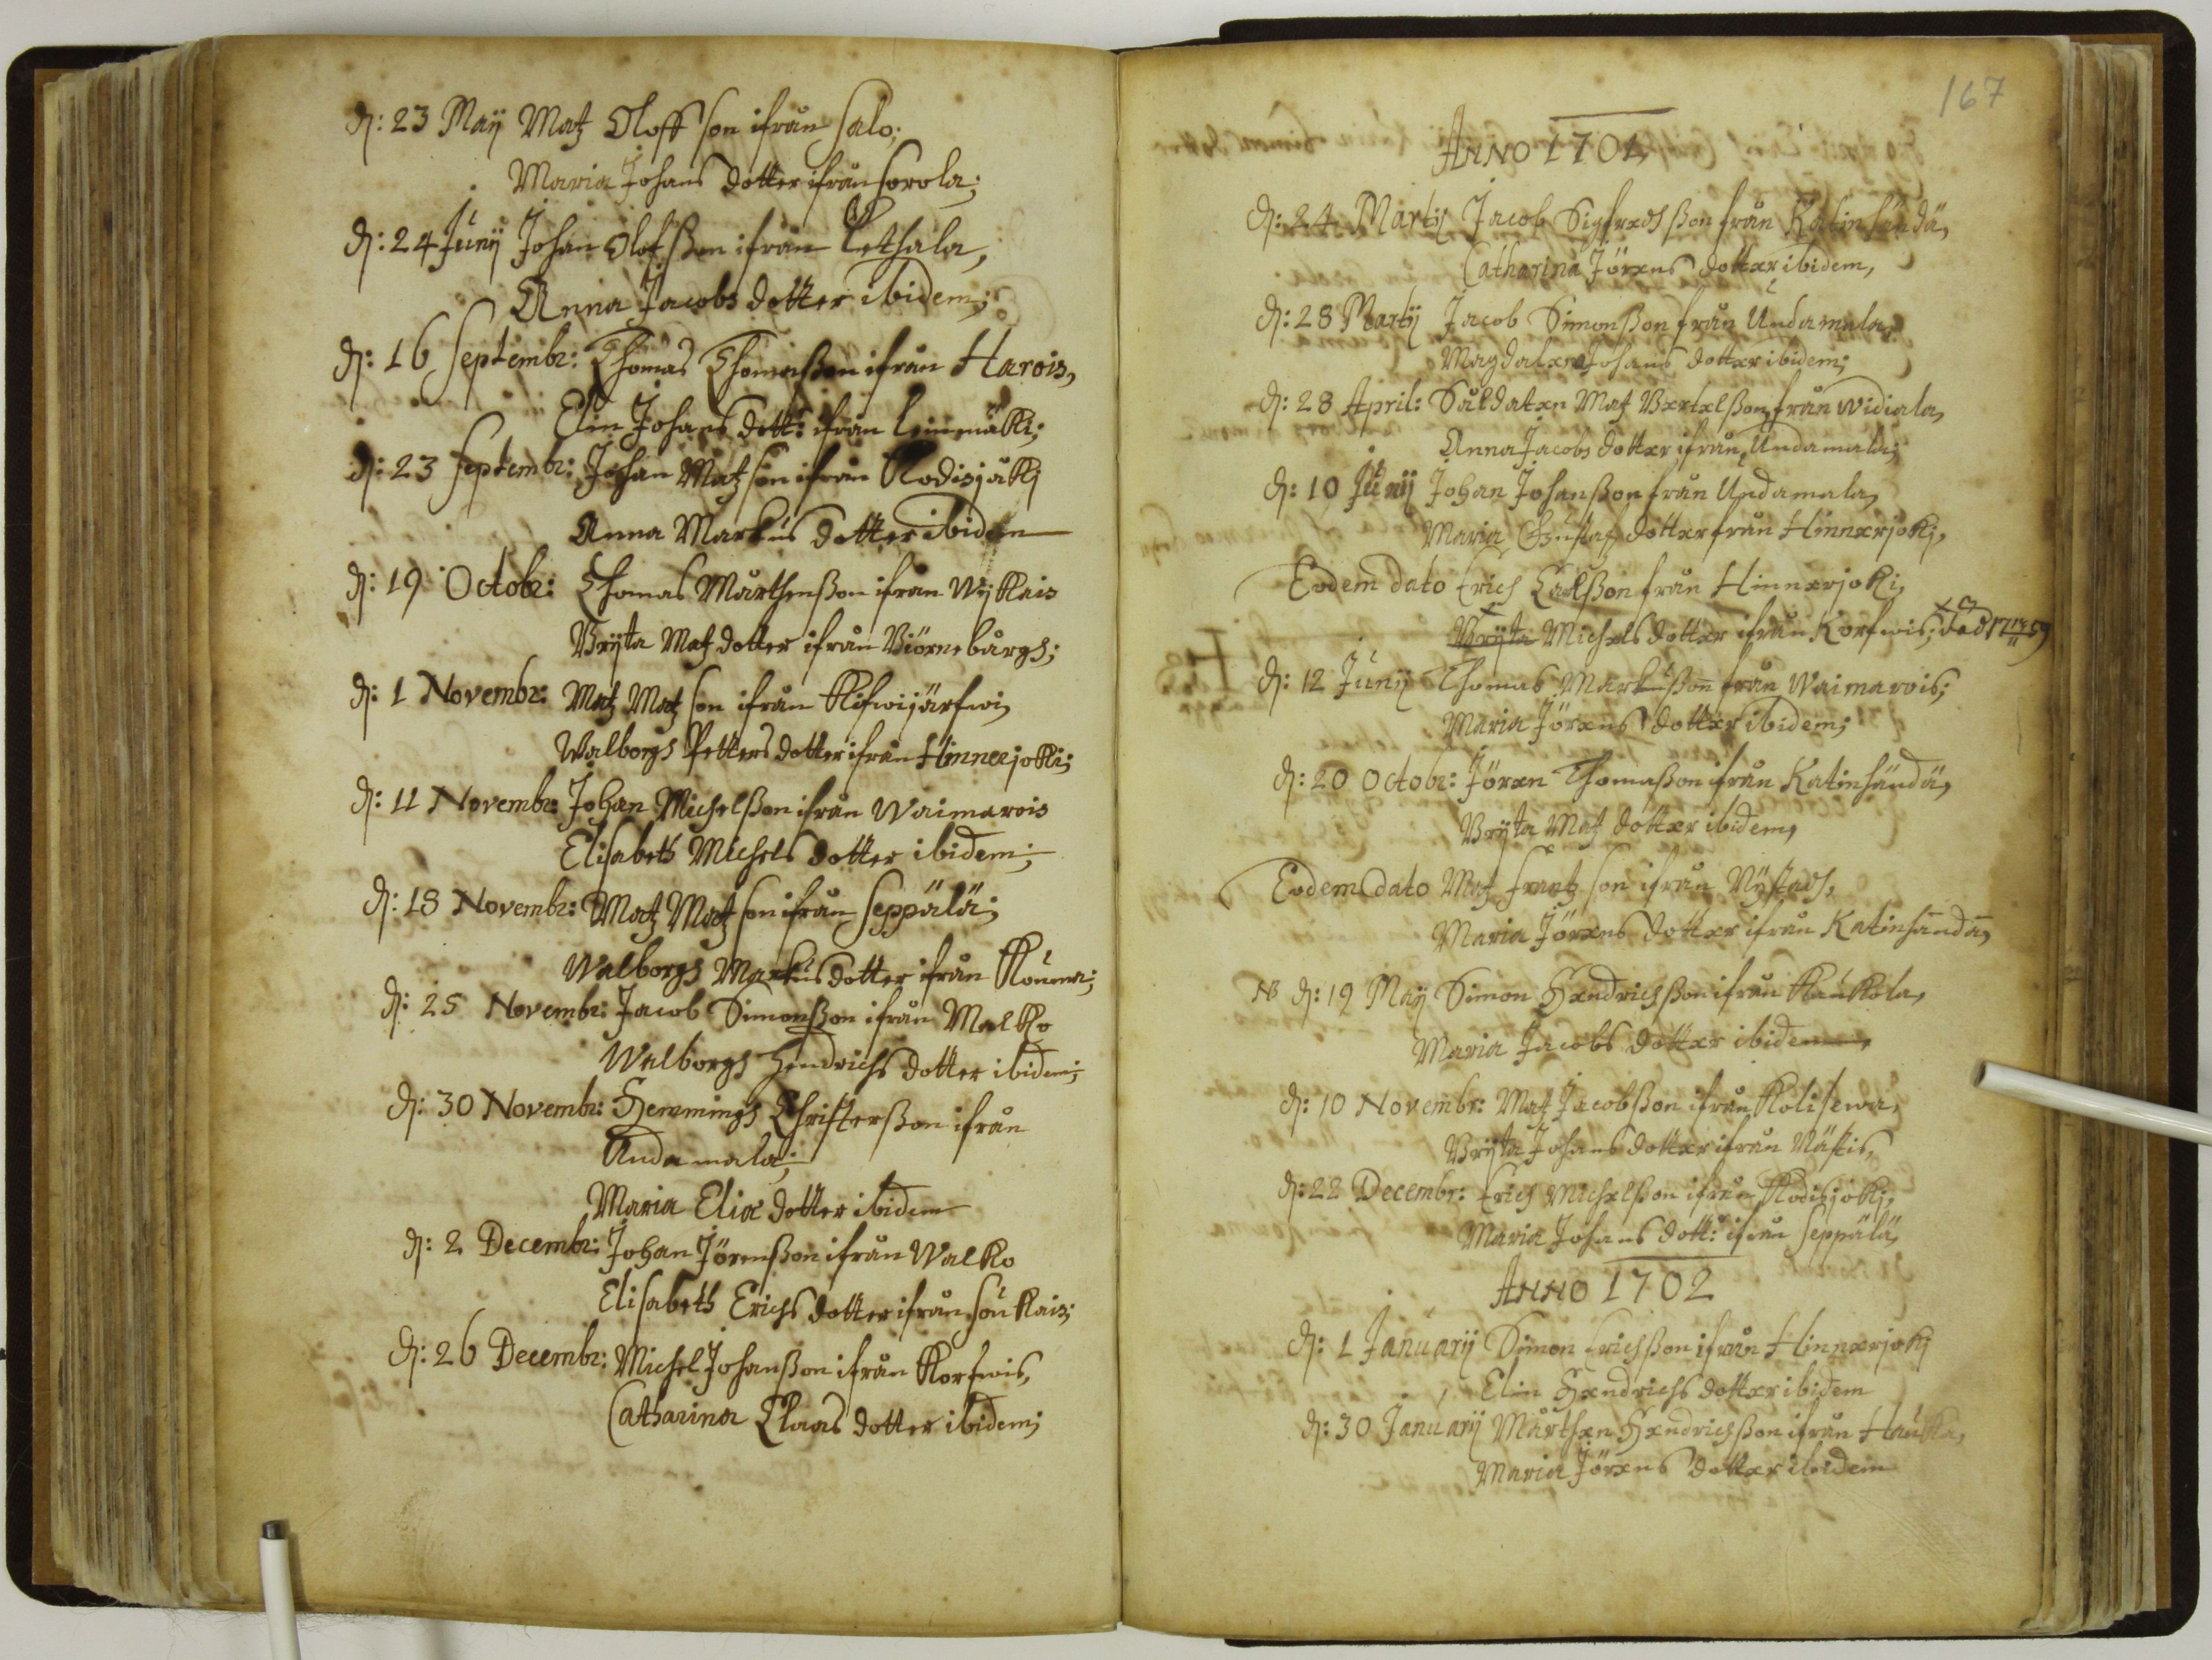 d: 23 Maÿ Matz Oloffson ifrån Salo;
Maria Johans dotter ifrån Sorola;
d: 24 Junÿ Johan Olofsßon ifrån Lethala,
Anna Jacobs dotter ibidem;
d: 16 Septembr: Thomas Thomaßon ifrån Harois,
Elin Johans dott: ifrån Leinmäki;
d: 23 Septembr: Johan Matzson ifrån Kodisjåki
Anna Markus dotter ibidem
d: 19 Octobr: Thomas Mårthenßon ifrån Nÿkais
Brÿta Matz dotter ifrån Biörnebårgh;
d: 1 Novembr: Matz Matzson ifrån Kifwijärfwi,
Walborgh Petters dotter ifrån Hinnerjoki;
d: 11 Novembr: Johan Michelßon ifrån Waimarois
Elisabeth Michels dotter ibidem;
d: 18 Novembr: Matz Matzson ifrån Seppälä;
Walborgh Markusdotter ifrån Kouma;
d: 25 Novembr: Jacob Simonßon ifrån Malko
Walborgh Hendrichs dotter ibidem;
d: 30 Novembr: Hemmingh Christerßon ifrån
Undamala;
Maria Eliæ dotter ibidem
d: 2 Decembr: Johan Jörenßon ifrån Walko
Elisabeth Erichs dotter ifrån Soukais;
d: 26 Decembr: Michel Johanßon ifrån Korfwis,
Catharina Claas dotter ibidem;
167
ANNO 1701
d: 24 Martÿ Jacob Sigfredhßon från Katinhändä,
Catharina Jörens dotter ibidem,
d: 28 Martÿ Jacob Simonßon från Undamala,
Magdalena Johans dotter ibidem;
d: 28 April: Såldaten Matz Bertelßon från Widiala,
Anna Jacobs dotter ifrån Undamala;
d: 10 Junÿ Johan Johanßon från Undamala,
Maria Gustaf dotter från Hinnerjoki,
Eodem dato Erich Carlßon från Hinnerjoki,
Brÿta Michels dotter ifrån Korfwis;
d: 12 Junÿ Thomas Markusßon från Waimarois;
Maria Jörens dotter ibidem;
d: 20 Octobr: Jören Thomaßon ifrån Katinhändä,
Brÿta Matz dotter ibidem,
Eodem dato Matz Frantzson ifrån Nÿstadh,
Maria Jörens dotter ifrån Katinhända,
NB d: 19 Maÿ Simon Hendrichßon ifrån Kaukola,
Maria Jacobs dotter ibidem,
d: 10 Novembr: Matz Jacobßon ifrån Kolisewa,
Brÿta Johans dotter ifrån Nästis,
d: 22 Decembr: Erich Michelßon ifrån Kodisjoki,
Maria Johans dott: ifrån Seppälä,
ANNO 1702
d: 1 Januarÿ Simon Erichßon ifrån Hinnerjoki
Elin Hendrichs dotter ibidem
d: 30 Januarÿ Mårthen Hendrichßon ifrån Hauka,
Maria Jörens dotter ibidem